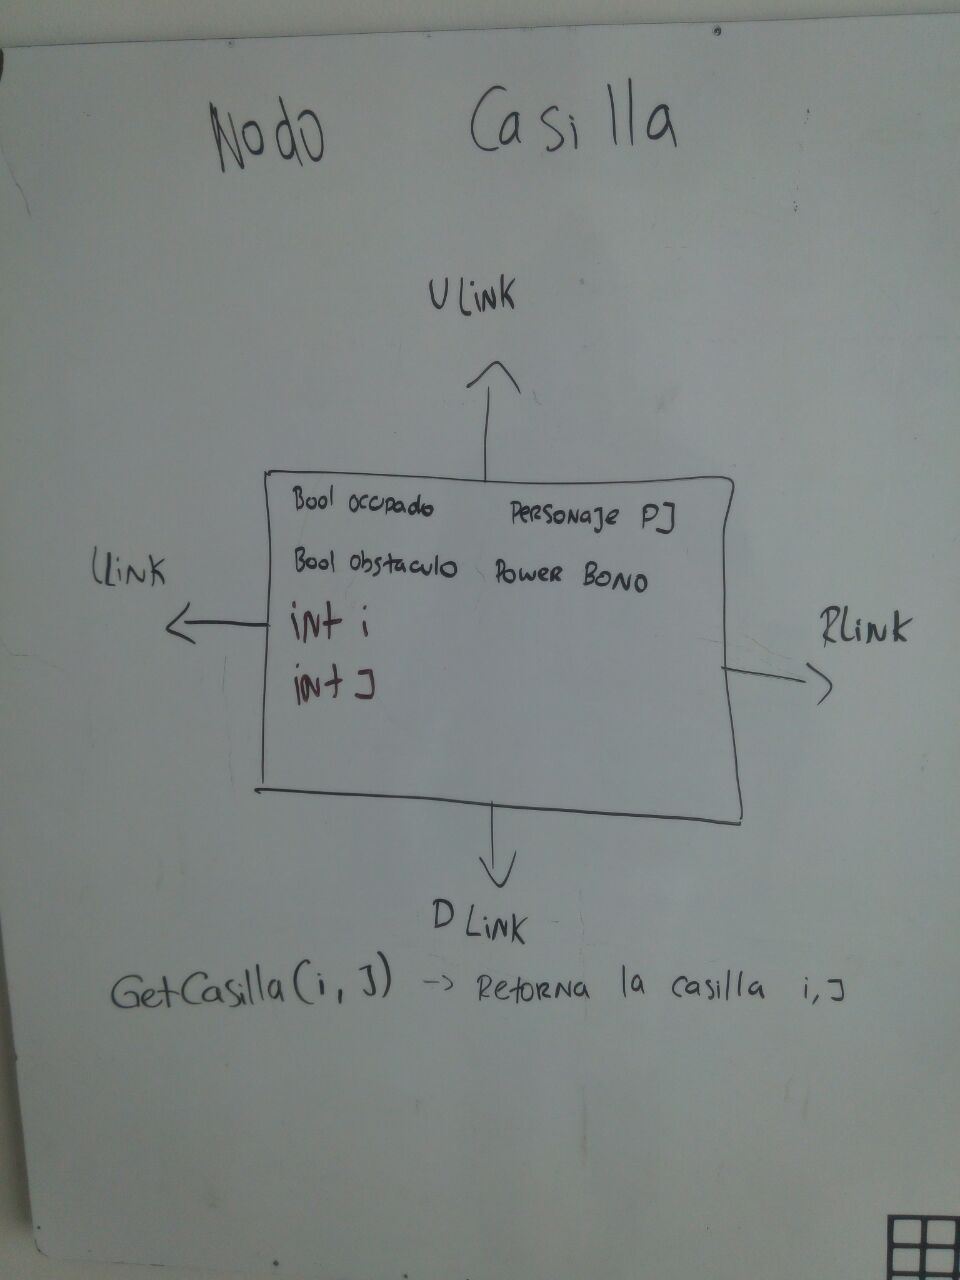 Nodo Casilla
ULink
Bool occupado Personaje PJ
Bool obstaculo Power Bono
LLink
int i
RLink
int J
DLink
GetCasilla(i, J) -> Retorna la casilla i,J